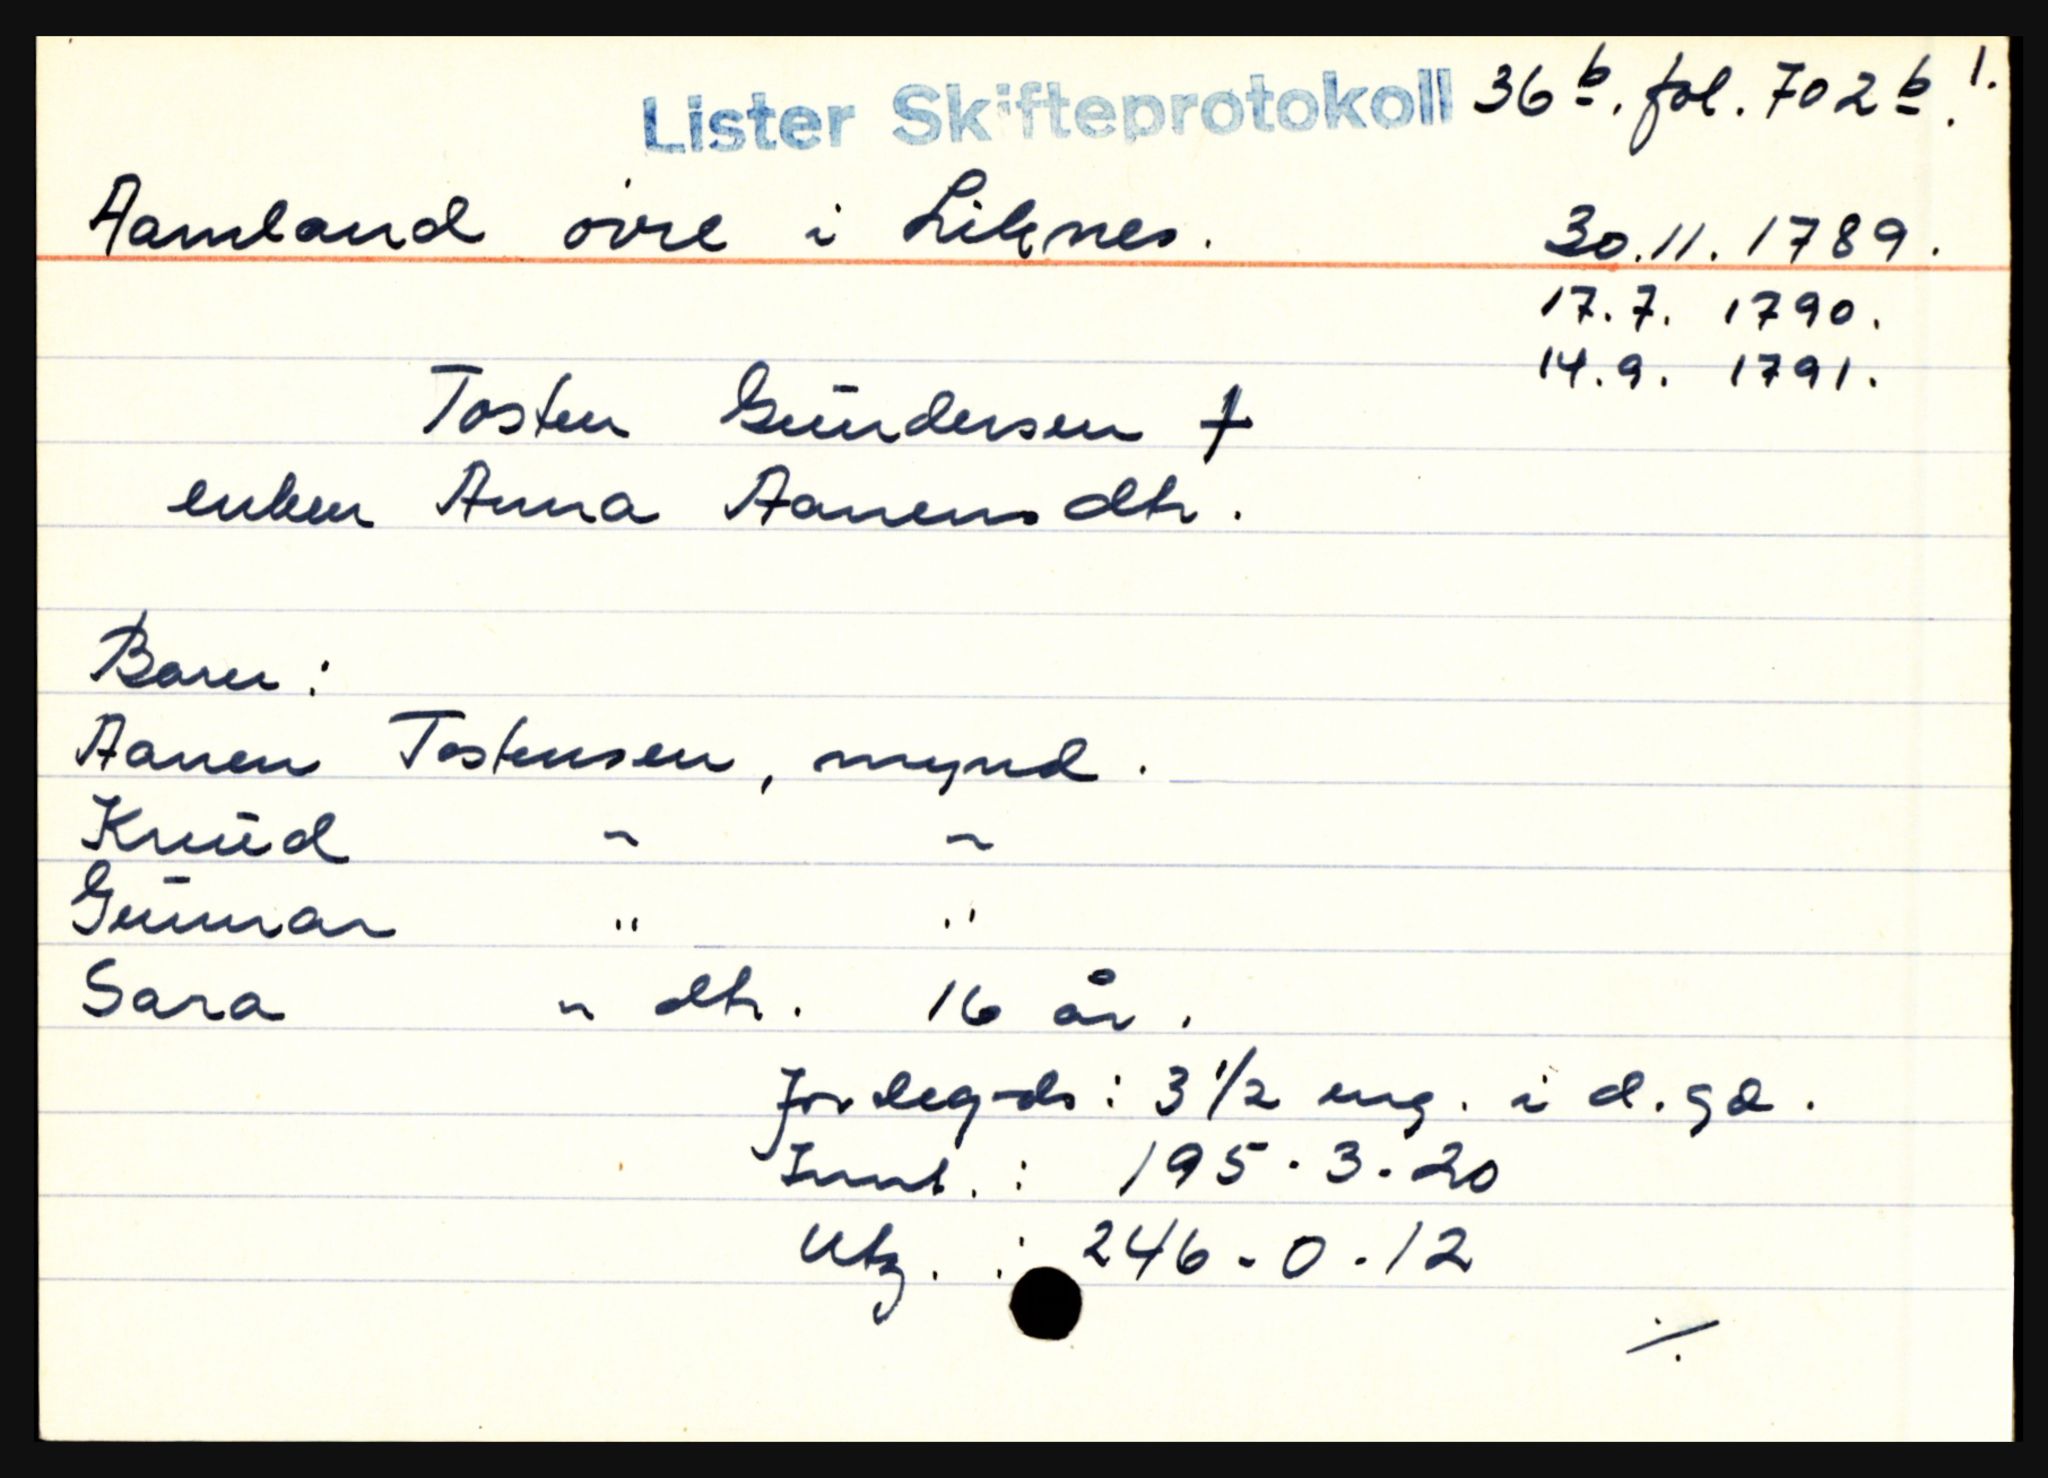 Lister Skifteprotokoll 36 b. fol. 702 b. 1.
Aamland övre i Liknes. 30.11.1789.
17.7. 1790.
14.9. 1791.
Tosten Gūndersen †
enken Anna Aanensdtr.
Barn:
Aanen Tostensen, mynd.
Knūd " "
Gūnnar " "
Sara " dtr. 16 år.
Jordeg-ds: 3 1/2 eng. i d. gd.
Innt. : 195.3.20
Utg. : 246-0-12
./.